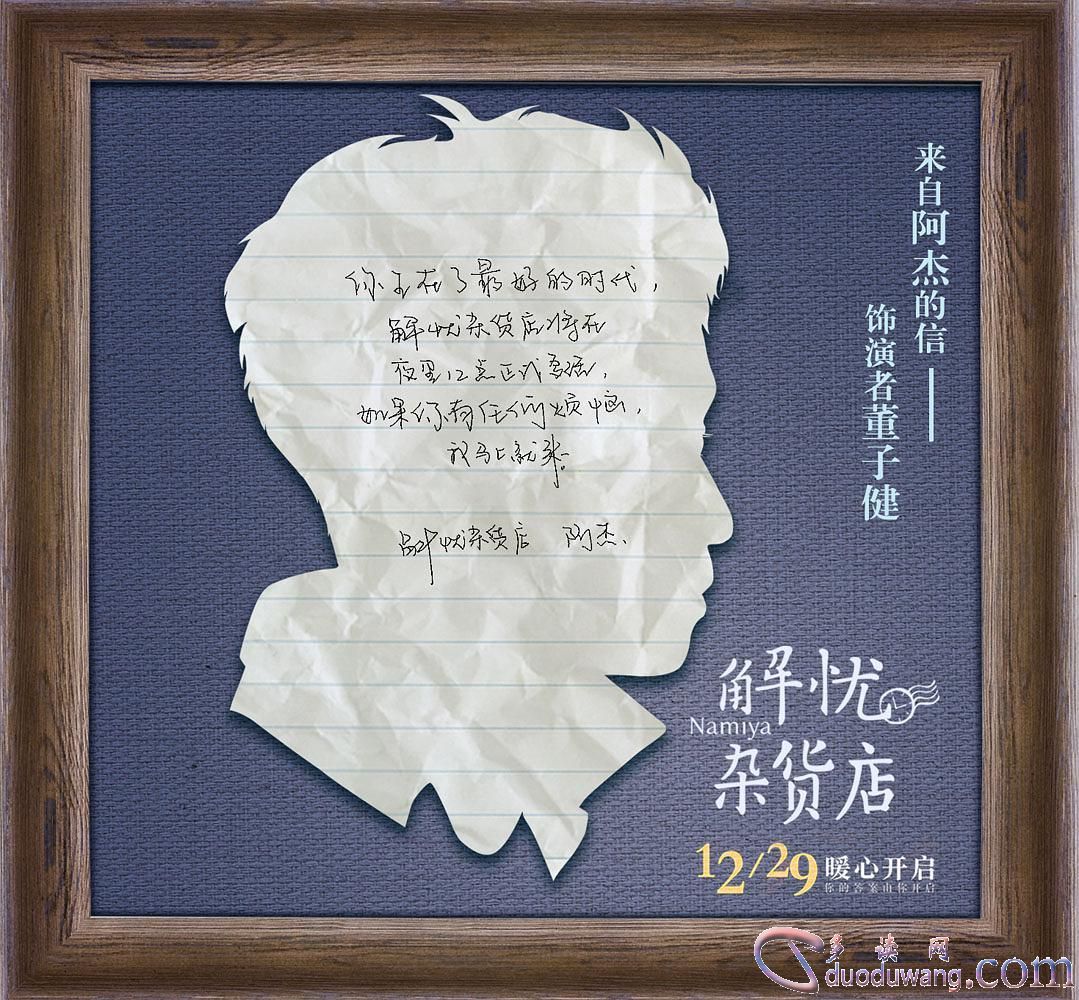 来自阿杰的信——
饰演者董子健
你正在了最好的时代,
解忧杂货店将在
夜里12点正式
如果你有任何烦恼,
我马上就来。
解忧杂货店 阿杰.
解忧
Namiya
杂货店
12/29 暖心开启
你的答案由你开启
多读网
duoduwang.com